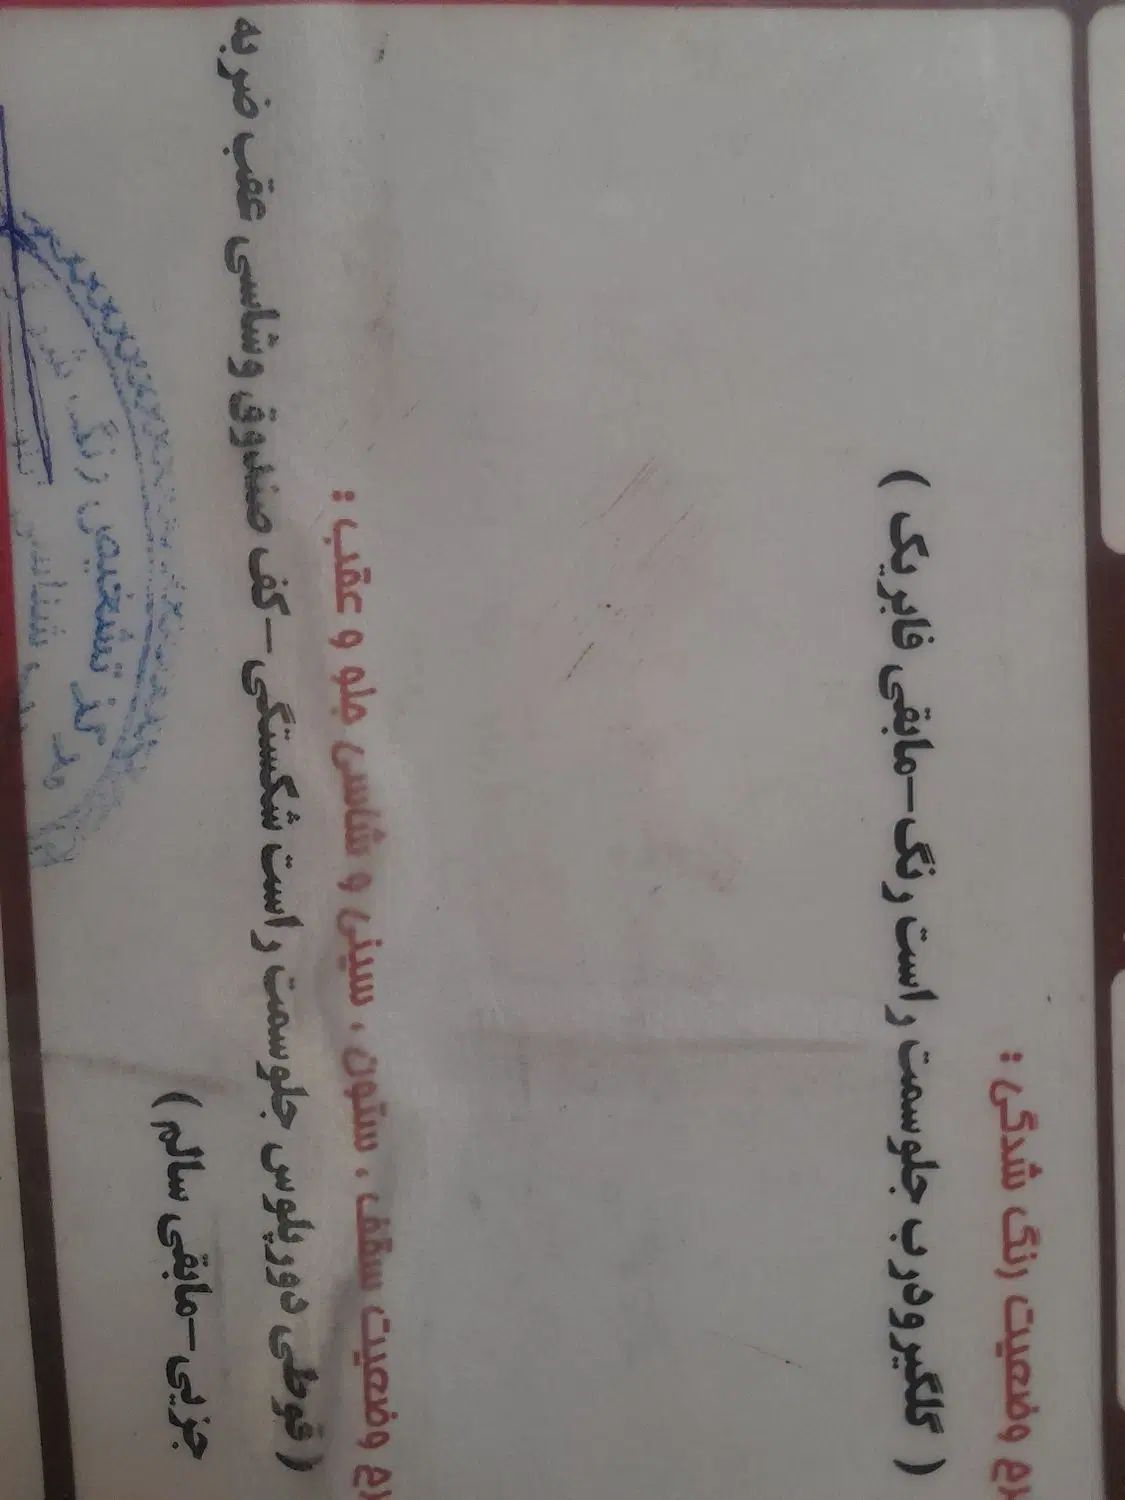 وضعیت رنگ شدگی :
( گلگیر و درب جلو سمت راست رنگ-مابقی فابریک )
وضعیت سقف ، ستون ، سینی و شاسی جلو و عقب :
( قوطی دور پلوس جلو سمت راست شکستگی-کف صندوق و شاسی عقب ضربه
جزیی-مابقی سالم )
تشخیص رنگ